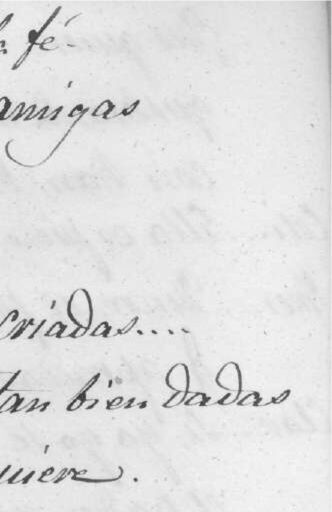 fé.
amigas
criadas....
tan bien dadas
uiere.